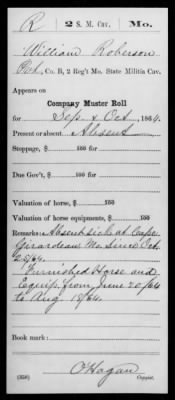 R | 2 S. M. Cav. | Mo.
William Roberson
Pvt., Co. B, 2 Reg't Mo. State Militia Cav.
Appears on
Company Muster Roll
for Sep & Oct, 1864.
Present or absent Absent
Stoppage, $ 100 for
Due Gov't, $ 100 for
Valuation of horse, $ 100
Valuation of horse equipments, $ 100
Remarks: Absent sick at Cape
Girardeau Mo. Since Oct.
25/64.
Furnished Horse and
Equip. from June 20/64
to Aug 15/64.
Book mark:
(358) O'Hagan
Copyist.